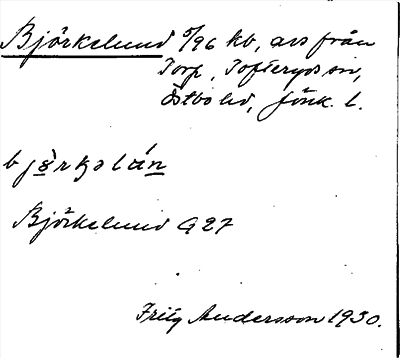 Björkelund 5/96 kb, avs från
Torp, Tofteryds sn,
Östbo hd, Jönk. l.
Björkelund G 27
Frity Andersson 1930.